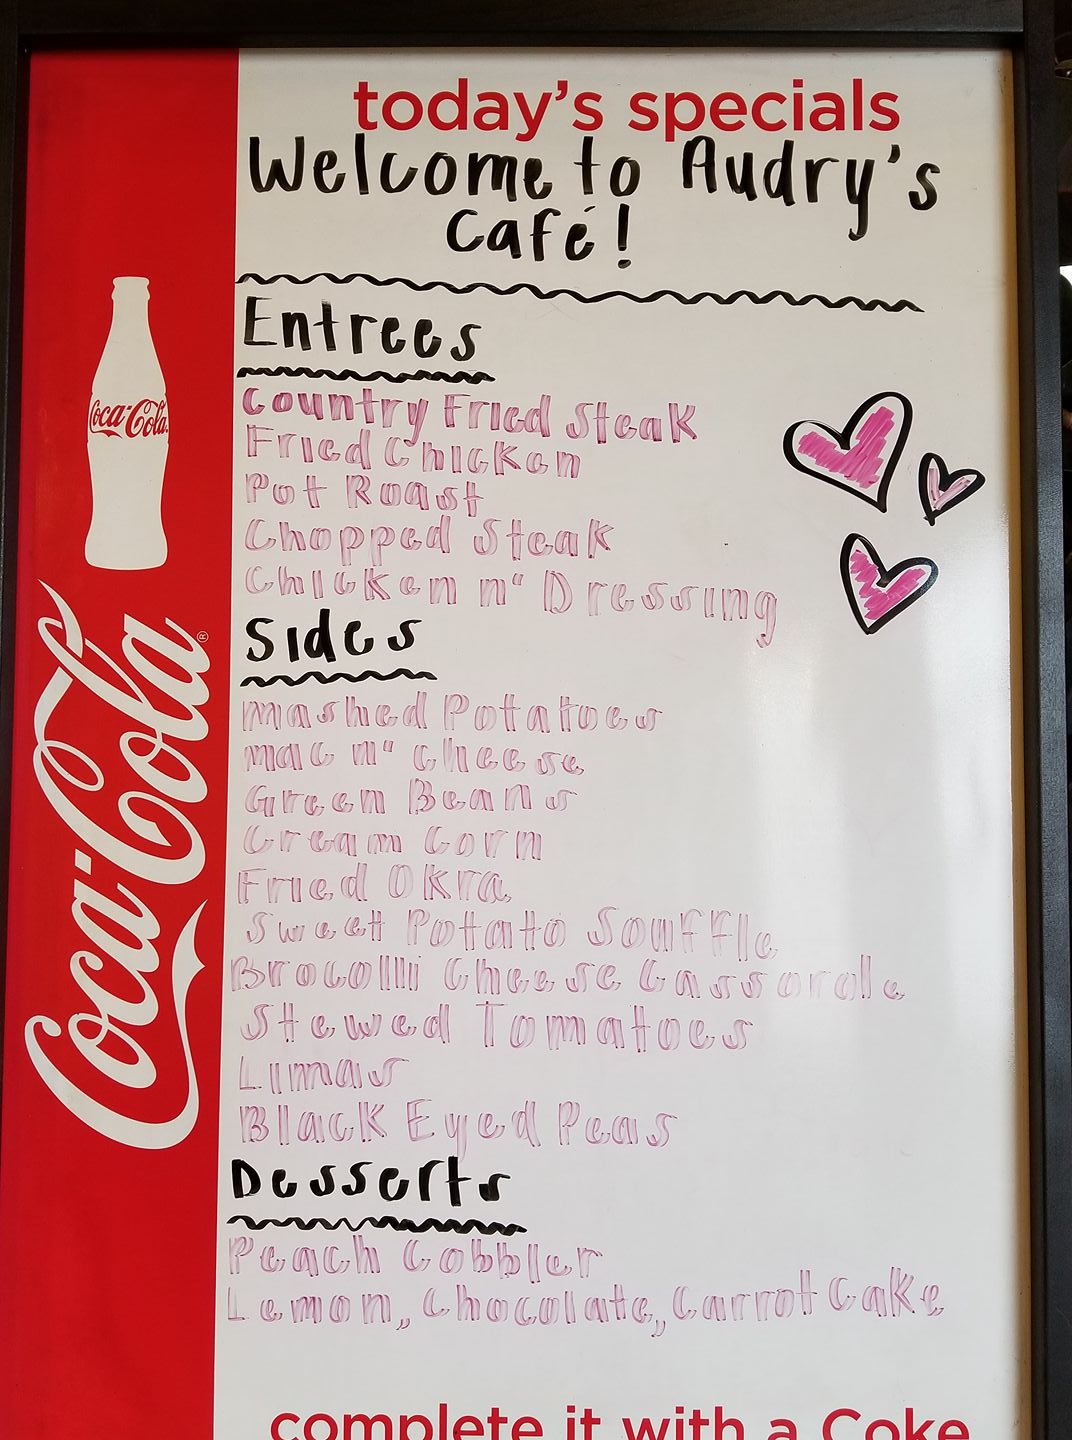 today's specials
Welcome to Audry's
Café!
Entrees
Country Fried Steak
Fried Chicken
Pot Roast
Chopped Steak
Chicken n' Dressing
Sides
Mashed Potatoes
Mac n' Cheese
Green Beans
Cream Corn
Fried Okra
Sweet Potato Souffle
Brocolli Cheese Cassorole
Stewed Tomatoes
Limas
Black Eyed Peas
Desserts
Peach Cobbler
Lemon, Chocolate, Carrot Cake
complete it with a Coke
Coca-Cola
Coca-Cola®